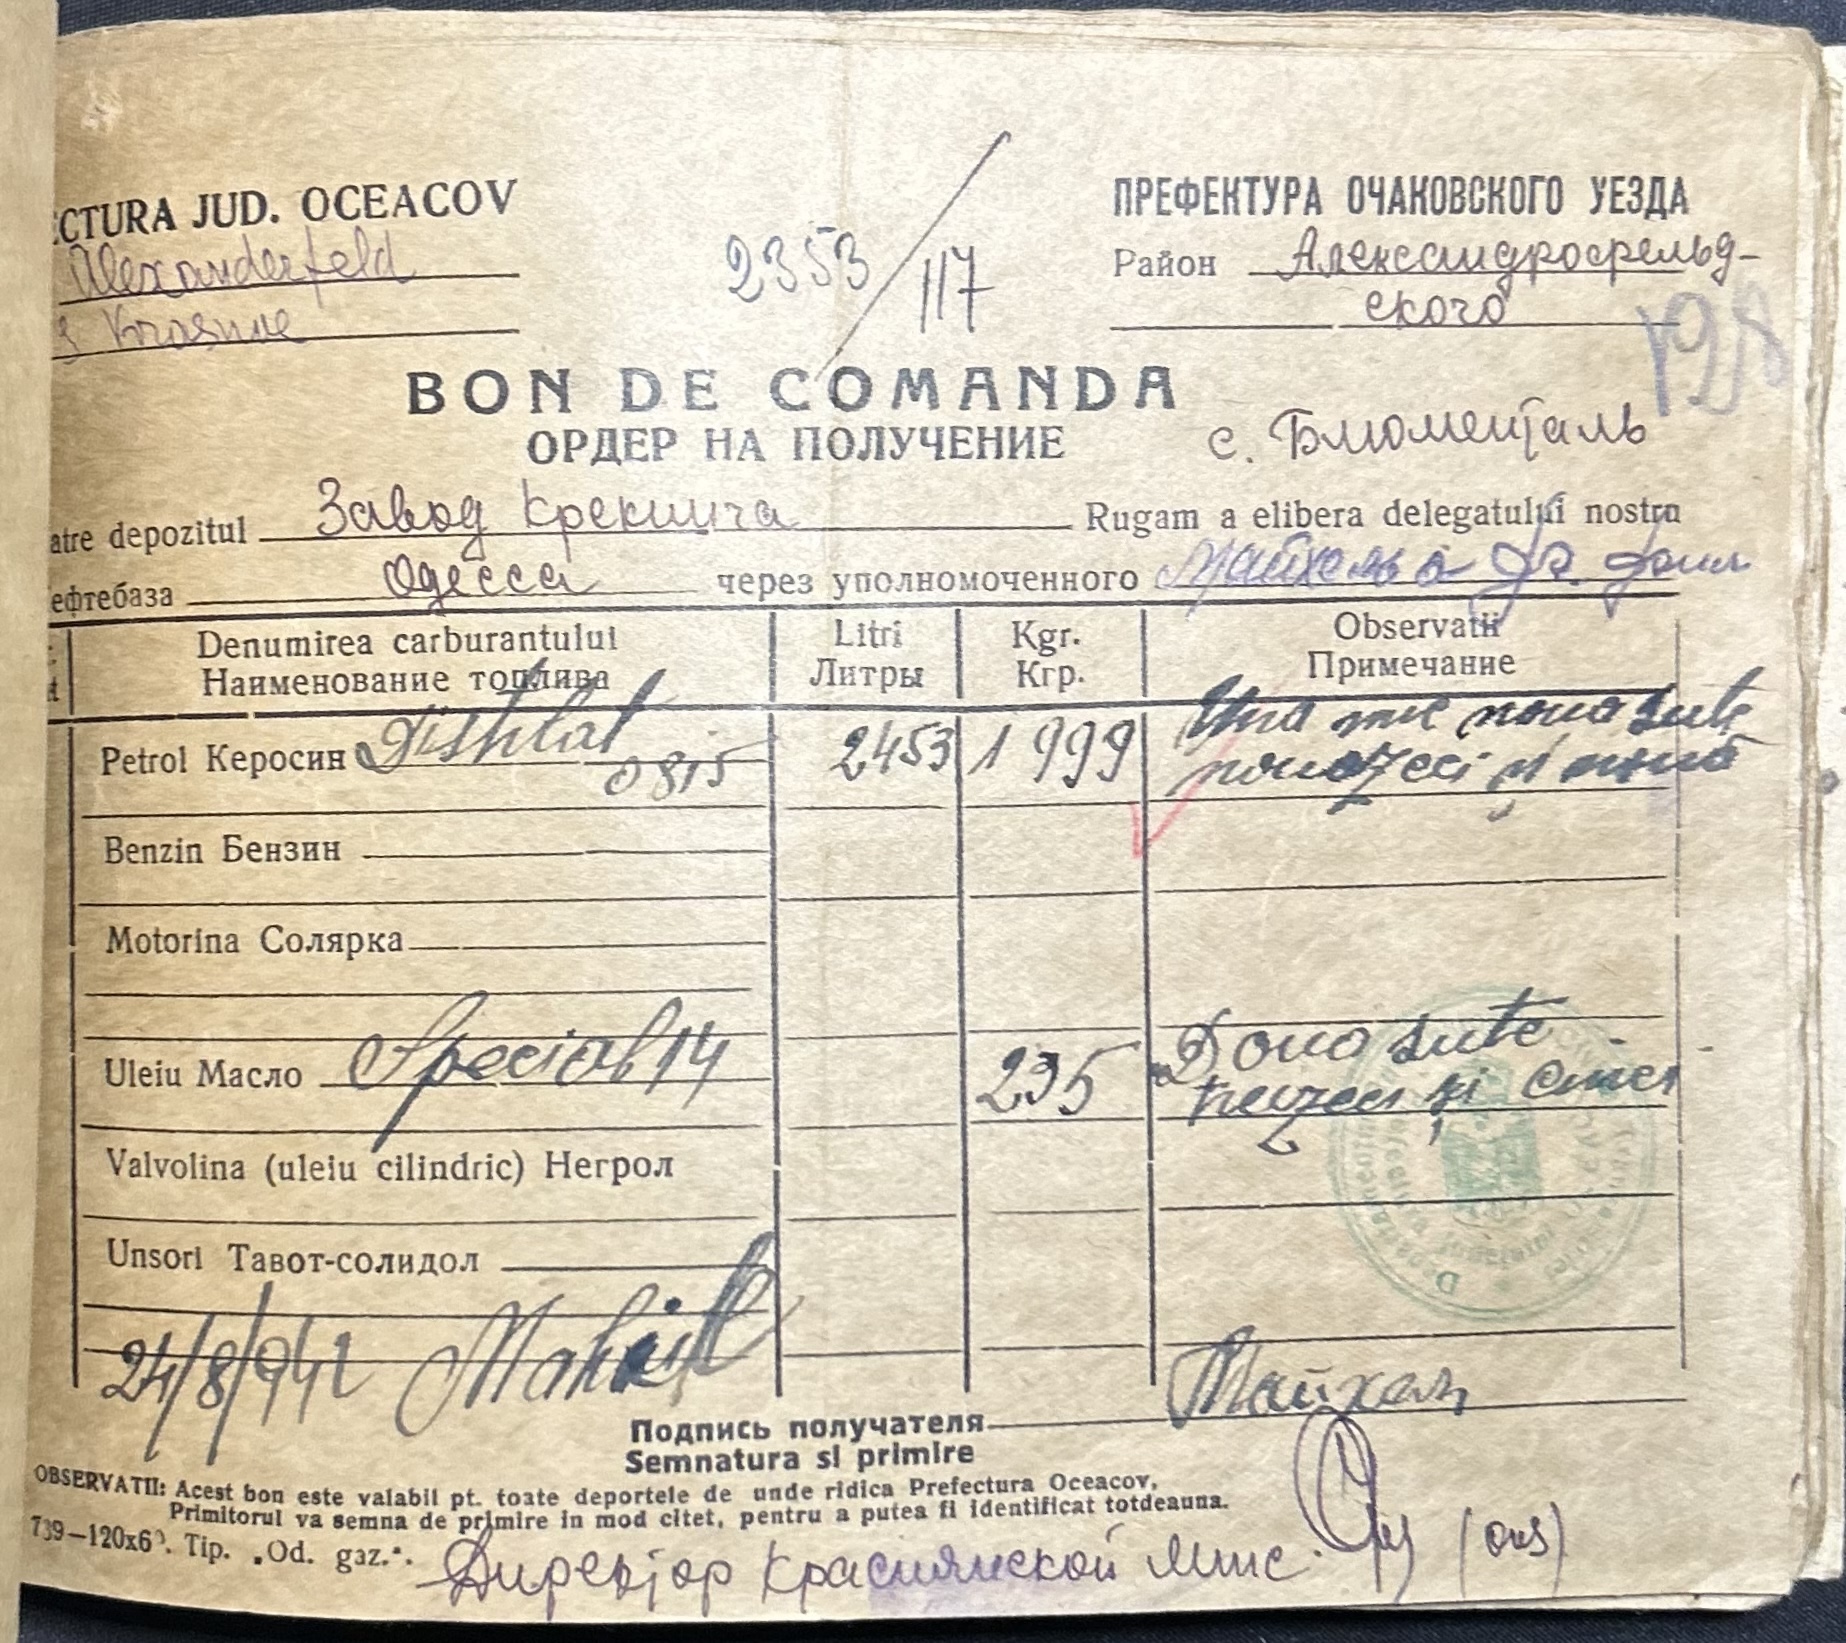 ECTURA JUD. OCEACOV
Alexanderfeld
Krasnne
2353/117
ПРЕФЕКТУРА ОЧАКОВСКОГО УЕЗДА
Район Александрофельд-
ского
198
BON DE COMANDA
ОРДЕР НА ПОЛУЧЕНИЕ
с. Блюменталь
atre depozitul Завод Крекинга Rugam a elibera delegatului nostru
ефтебаза Одесса через уполномоченного
Denumirea carburantului Litri Kgr. Observatii
Наименование топлива Литры Кгр. Примечание
Petrol Керосин Distilat 0815 2453 1999 Una mie noua sute
nouazeci și nouă
Benzin Бензин
Motorina Солярка
Uleiu Масло Special 14 235 Doua sute
treizeci și cinci
Valvolina (uleiu cilindric) Негрол
Unsori Тавот-солидол
24/8/942
Майхель
Подпись получателя
Semnatura si primire
OBSERVATII: Acest bon este valabil pt. toate deportele de unde ridica Prefectura Oceacov,
Primitorul va semna de primire in mod citet, pentru a putea fi identificat totdeauna.
739—120x6. Tip. „Od. gaz.“.
Директор Краснянской Мтс.